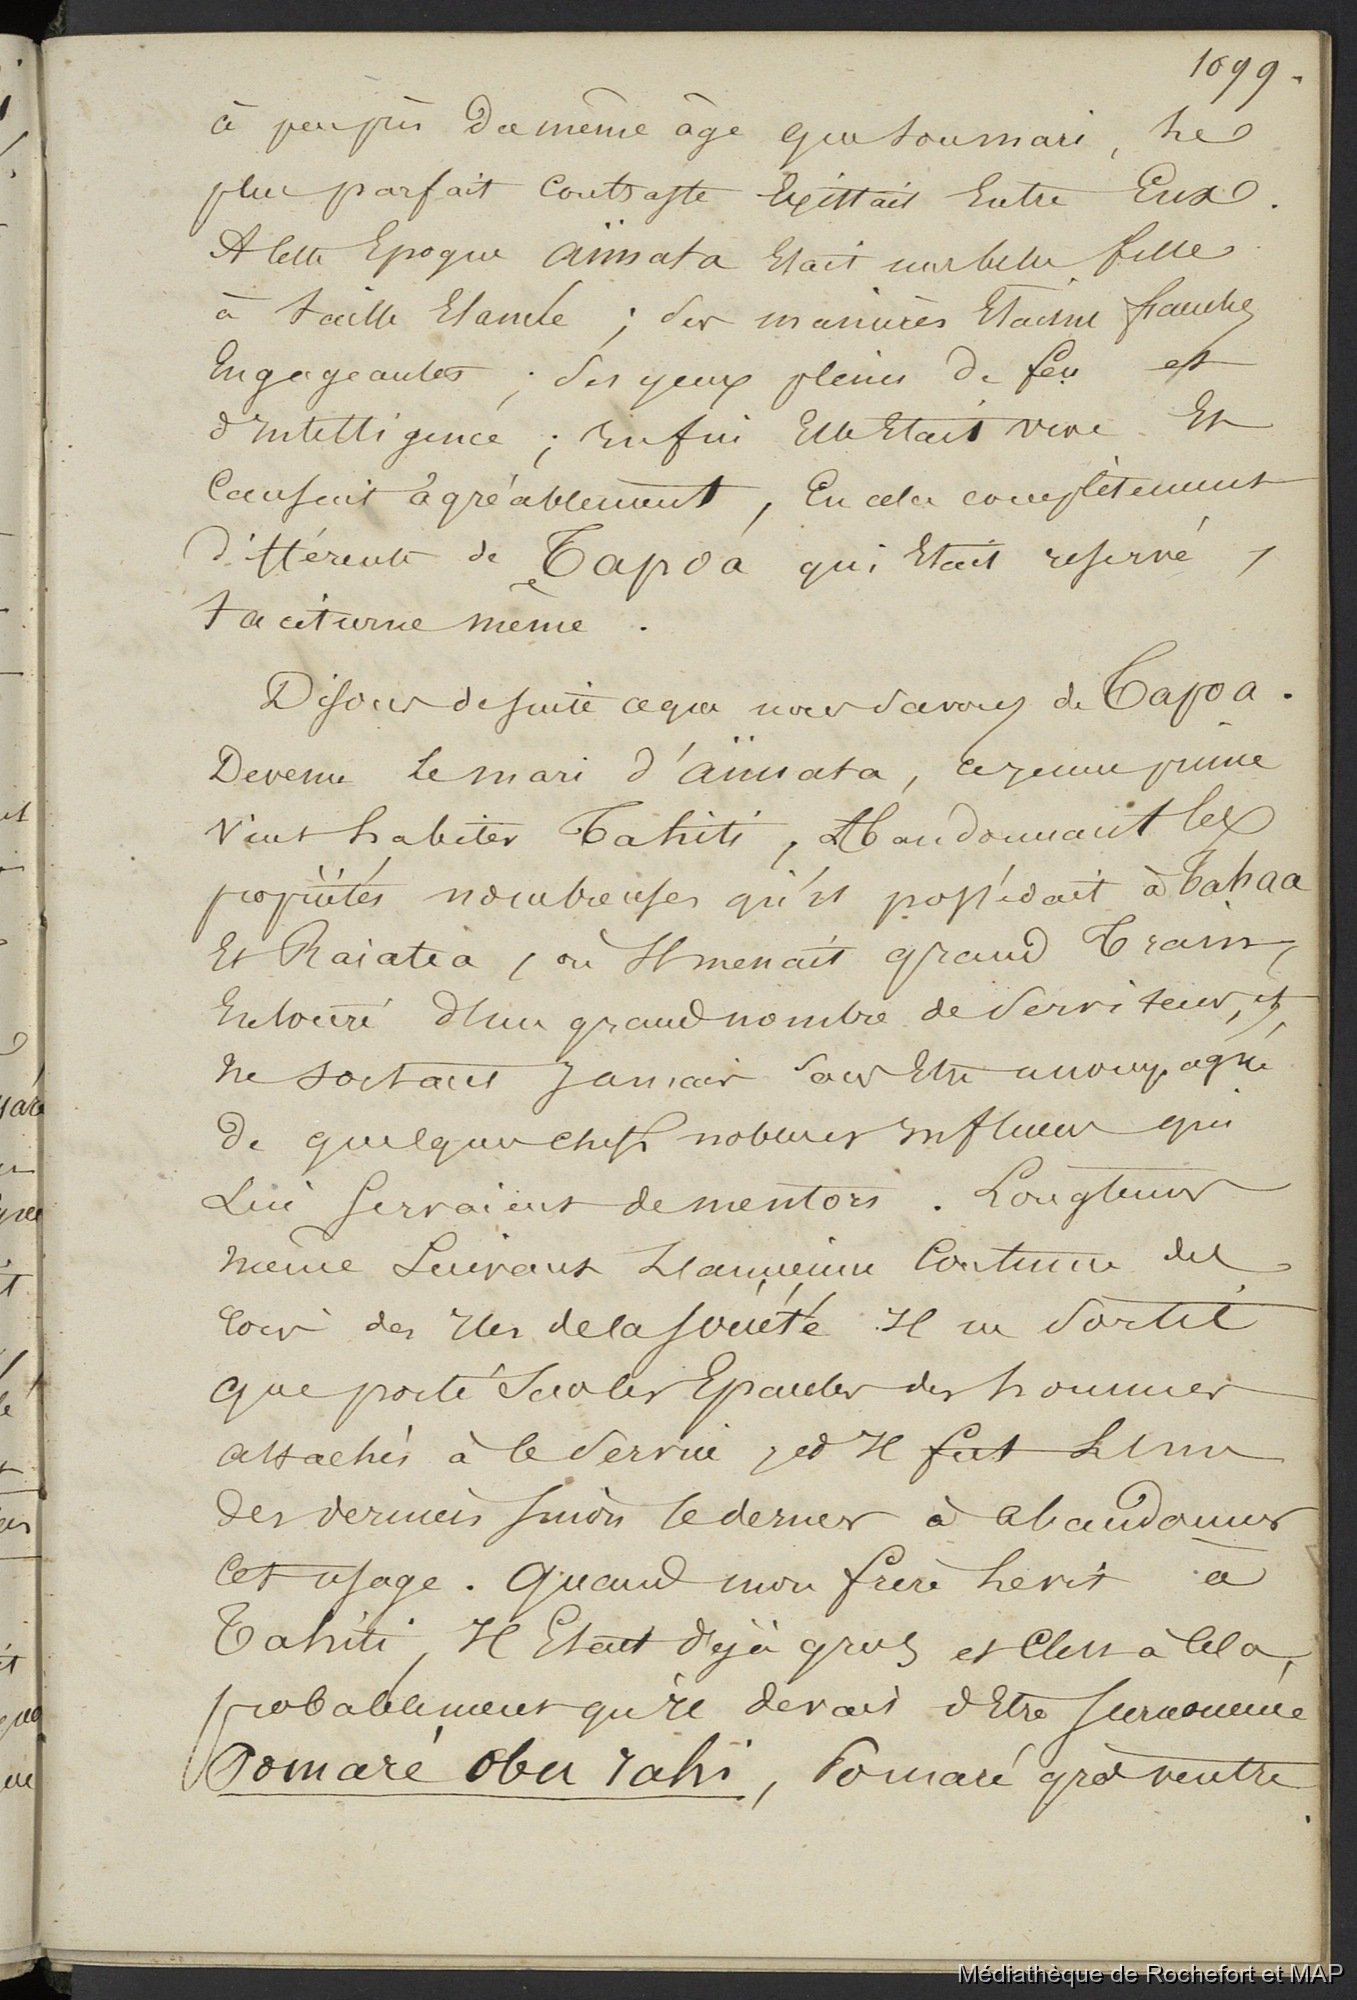 1099.
à peu près du même âge que son mari, le
plus parfait contraste existait entre Eux.
A cette Epoque Aïmata Etait une belle fille
à taille Elancée ; ses manières Etaient franches
Engageantes ; ses yeux pleins de feu et
d'Intelligence ; Enfin Elle Etait vive Et
Causait agréablement, En cela complètement
différente de Tapoa qui Etait reservé,
taciturne même.
Disons de suite ce que nous savons de Tapoa.
Devenu le mari d'Aïmata, ce jeune prince
vint habiter Tahiti, Abandonnant les
propriétés nombreuses qu'il possédait à Tahaa
Et Raiatéa, où Il menait grand Train,
Entouré d'un grand nombre de serviteurs, et
ne sortant Jamais sans Etre accompagné
de quelques chefs nobles et Influens qui
Lui servaient de mentors. Longtems
même Suivant L'ancienne Coutume des
rois des Iles de la société Il ne sortit
que porté Sur les Epaules des hommes
attachés à ce service, et Il fut L'un
des derniers sinon le dernier à abandonner
Cet usage. Quand mon frère le vit à
Tahiti, Il Etait déjà gros et C'est à Cela,
probablement qu'il devait d'Etre surnommé
Pomaré Obu rahi, Pomaré gros ventre
.
Médiathèque de Rochefort et MAP